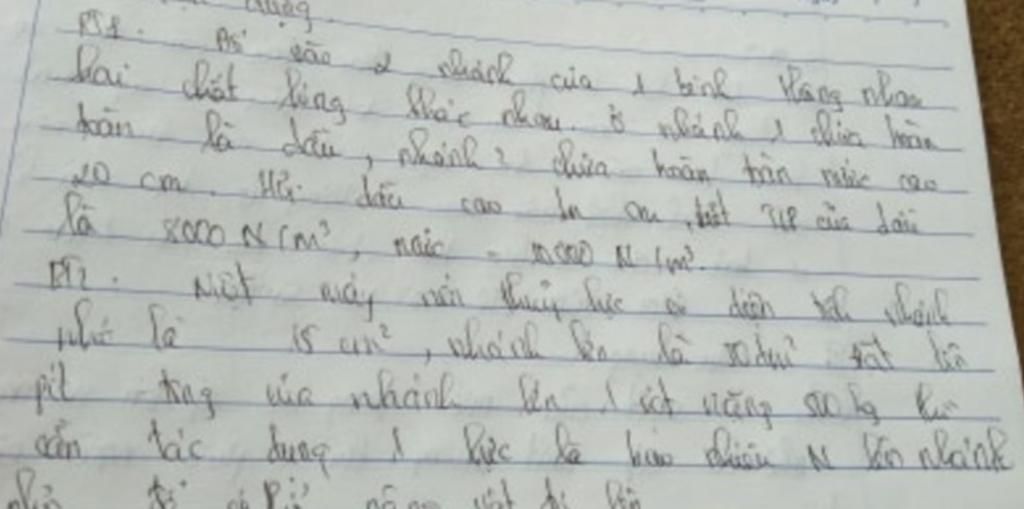 dụng.
BT1. Đổ vào 2 nhánh của 1 bình thông nhau
hai chất lỏng khác nhau. ở nhánh 1 chứa hoàn
toàn là dầu, nhánh 2 chứa hoàn toàn nước cao
20 cm. Hỏi dầu cao bn cm, biết TLR của dầu
là 8000 N/m³, nước = 10000 N/m³.
BT2. Một máy nén thuỷ lực có diện tích nhánh
nhỏ là 15 cm², nhánh lớn là đặt lên
pít - tông của nhánh lớn 1 vật nặng kg
cần tác dụng 1 lực là bao nhiêu N lên nhánh
nhỏ để có thể nâng vật đó lên